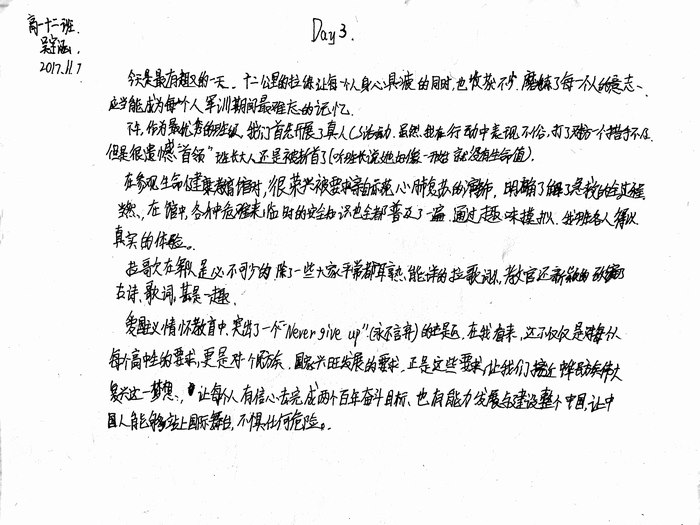 高一十二班.
吴宇涵.
2017.11.7
Day 3.
今天是最有趣的一天。十二公里的拉练让每个人身心具疲的同时,也收获不少,磨练了每一个人的意志、
应当能成为每个人军训期间最难忘的记忆.
下午,作为最优秀的班级,我们首先开展了真人CS活动.虽然我在行动中表现不俗,打了对方一个措手不及.
但是很遗憾"首领"班长大人还是被斩首了(班长说她好像一开始就没有生命值).
在参观生命健康教育馆时,很荣兴被要求亲自示范心肺复苏的演练,明确了解了急救的全过程.
当然,在馆中,各种危险来临时的安全知识也全都普及了一遍.通过趣味模拟.我班各人得以
真实的体验。
拉歌欠在军队是必不可少的.除了一些大家平常都耳熟能详的拉歌词,教官还新颖的改编了
古诗、歌词,甚是有趣.
爱国主义情怀教育中,突出了一个"Never give up"(永不言弃)的主题.在我看来,这不仅仅是对
每个高中生的要求,更是对个民族、国家兴旺发展的要求,正是这些要求,让我们接近中华民族伟大
复兴这一梦想、让每个人有信心去完成两个百年奋斗目标、也有能力发展与建设整个中国,让中
国人能够站上国际舞台,不惧任何危险。